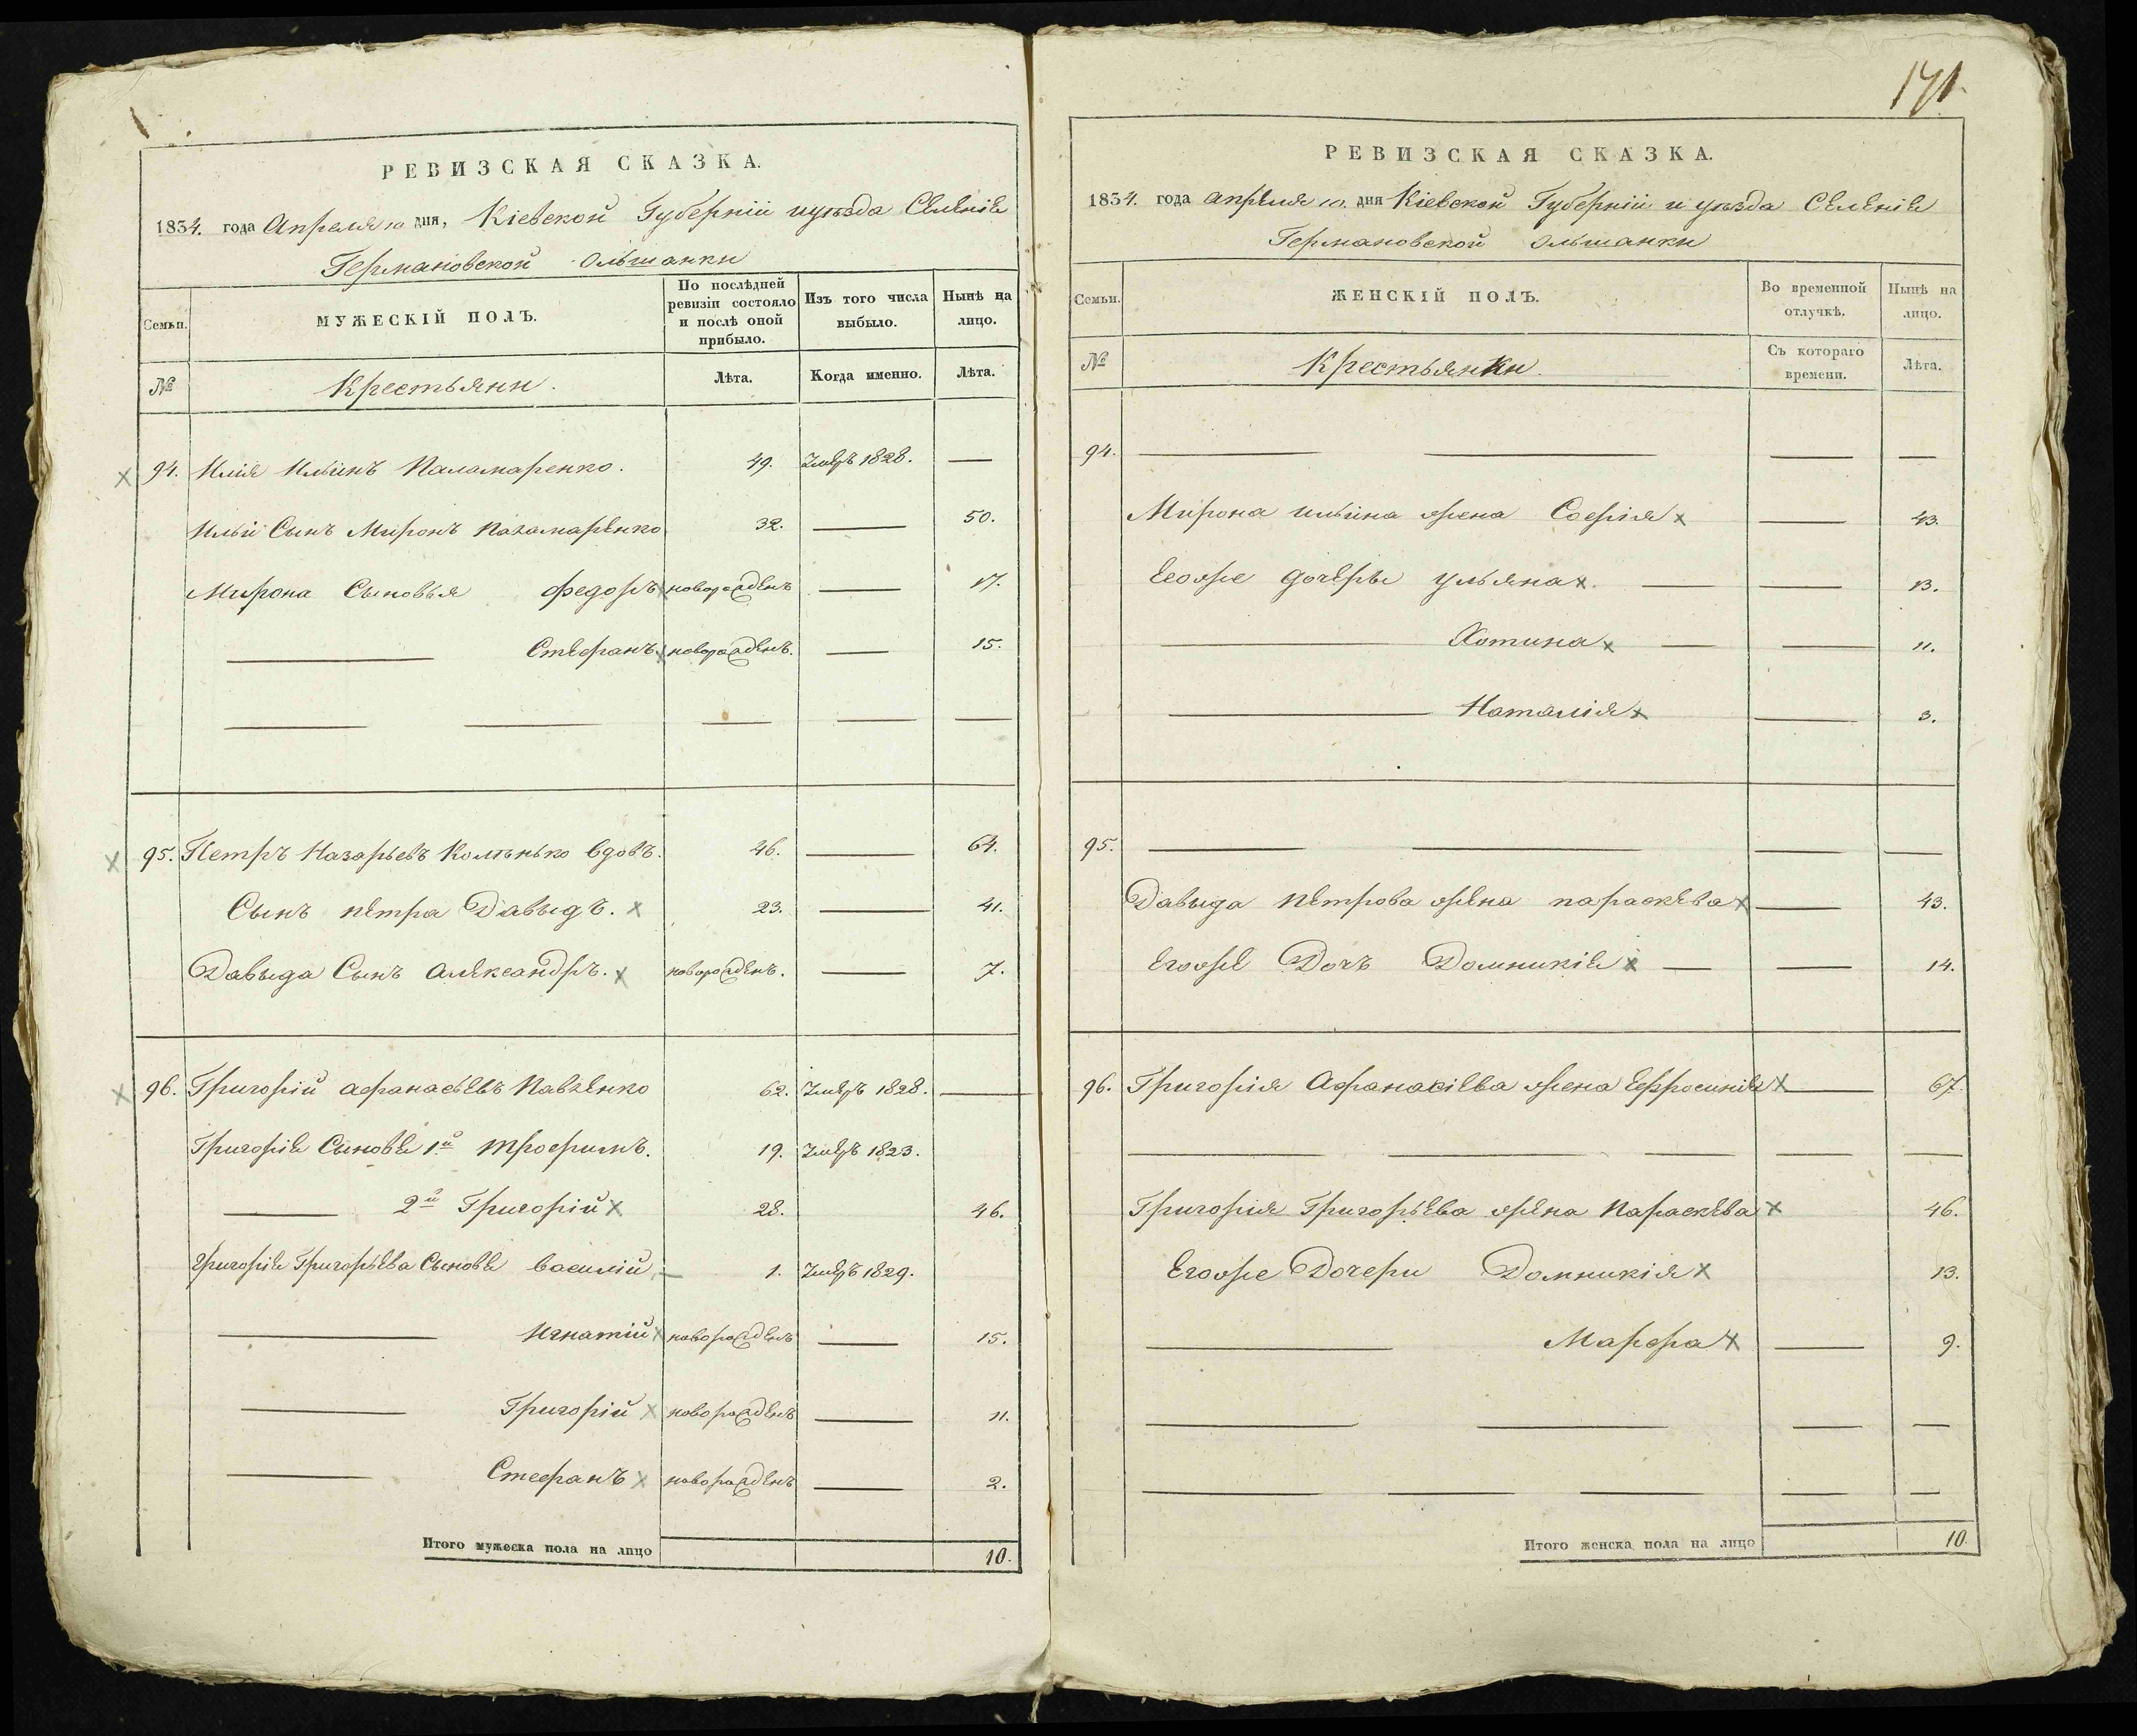 171.
РЕВИЗСКАЯ СКАЗКА.
1834. года Апреля 10 дня, Кіевской Губерніи и уѣзда Селенія
Германовской Ольшанки
Семьи.
МУЖЕСКІЙ ПОЛЪ.
По послѣдней ревизіи состояло и послѣ оной прибыло.
Изъ того числа выбыло.
Нынѣ на лицо.
№
Крестьяни.
Лѣта.
Когда именно.
Лѣта.
94. Илія Ильинъ Паламаренко. 49. Умеръ 1828. —
Ильи Сынъ Миронъ Паламаренко 32. — 50.
Мирона Сыновья Федоръ новорожденъ — 17.
— Стефанъ новорожденъ. — 15.
95. Петръ Назарьевъ Колѣнько вдовъ. 46. — 64.
Сынъ петра Давыдъ. 23. — 41.
Давыда Сынъ александръ. новорожденъ. — 7.
96. Григорій афанасьевъ Павленко 62. Умеръ 1828. —
Григорія Сыновя 1й трофимъ. 19. Умеръ 1823.
— 2й Григорій 28. 46.
Григорія Григорьева Сыновя василій 1. Умеръ 1829.
— Игнатій новорожденъ — 15.
— Григорій новорожденъ — 11.
— Стефанъ новорожденъ — 2.
Итого мужеска пола на лицо 10.
РЕВИЗСКАЯ СКАЗКА.
1834. года апреля 10. дня Кіевской Губерніи и уѣзда Селенія
Германовской Ольшанки
Семьи.
ЖЕНСКІЙ ПОЛЪ.
Во временной отлучкѣ.
Нынѣ на лицо.
№
Крестьянки.
Съ котораго времени.
Лѣта.
94. — — — —
Мирона ильина жена Софія — 43.
Еоже дочеры ульяна — — 13.
— Хотина — — 11.
— Наталія — 3.
95. — — — —
Давыда петрова жена параскева — 43.
Егоже Дочъ Домникія — — 14.
96. Григорія Афанасіева жена Ефросинія — 67.
Григорія Григорьева жена Параскева 46.
Егоже Дочери Домникія 13.
— Марфа — 9.
Итого женска пола на лицо 10.